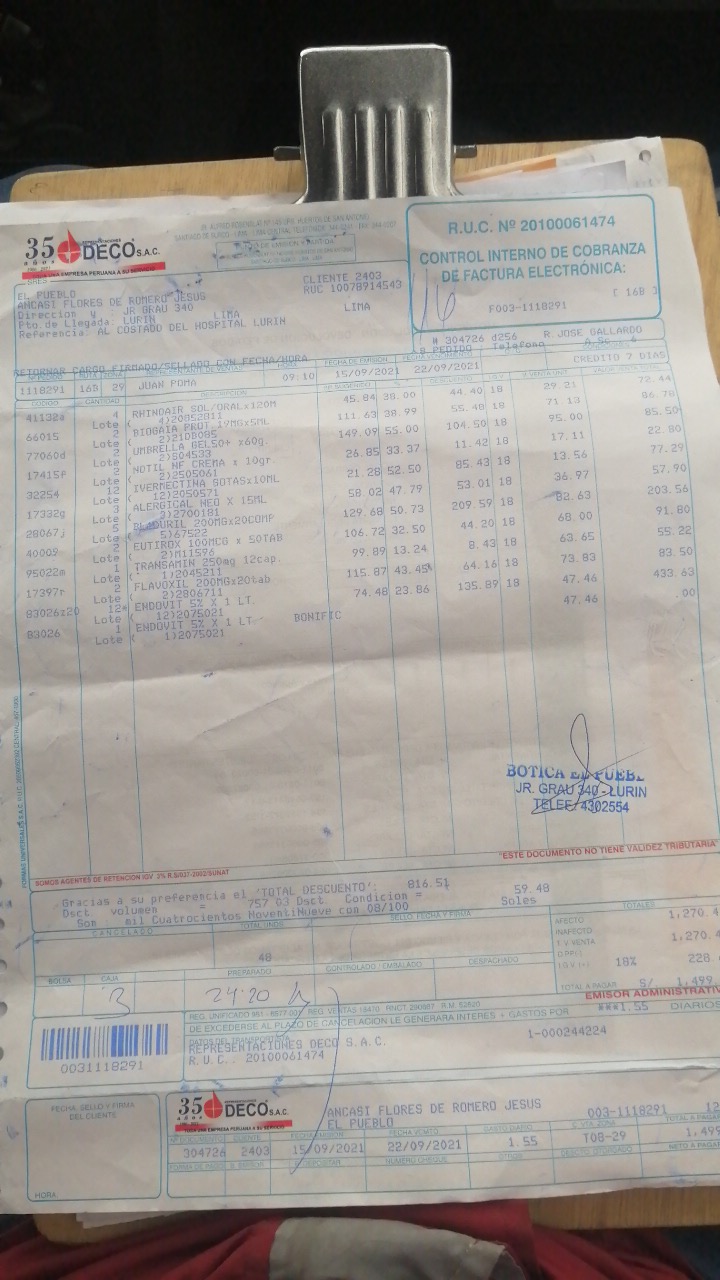 35 años
REPRESENTACIONES DECO S.A.C.
TODA UNA EMPRESA PERUANA A SU SERVICIO
R.U.C. Nº 20100061474
CONTROL INTERNO DE COBRANZA
DE FACTURA ELECTRÓNICA:
F003-1118291
16
SRES
EL PUEBLO
ANCASI FLORES DE ROMERO JESUS
Direccion y : JR GRAU 340 LIMA
Pto.de Llegada: LURIN LIMA
Referencia: AL COSTADO DEL HOSPITAL LURIN
CLIENTE 2403
RUC 10078914543
# 304726 d256 R. JOSE GALLARDO
RETORNAR CARGO FIRMADO/SELLADO CON FECHA/HORA
1118291 16B 29 JUAN POMA 09:10 15/09/2021 22/09/2021 CREDITO 7 DIAS
CODIGO CANTIDAD DESCRIPCION
41132a 4 RHINOAIR SOL/ORALx120M 45.84 38.00 44.40 18 29.21 72.44
Lote ( 4)20852811
66015 2 BIOGAIA PROT.19MGx5ML 111.63 38.99 55.48 18 71.13 86.78
Lote ( 2)21DB085
77060d 2 UMBRELLA GEL50+ x60g. 149.09 55.00 104.50 18 95.00 85.50
Lote ( 2)504533
17415f 2 NOTIL NF CREMA x 10gr. 26.85 33.37 11.42 18 17.11 22.80
Lote ( 2)2505061
32254 12 IVERMECTINA GOTASx10ML 21.28 52.50 85.43 18 13.56 77.29
Lote ( 12)2050571
17332g 3 ALERGICAL NEO X 15ML 58.02 47.79 53.01 18 36.97 57.90
Lote ( 3)2700181
28067j 5 200MGx20COMP 129.68 50.73 209.59 18 82.63 203.56
Lote ( 5)67522
40009 2 EUTIROX 100MCG x 50TAB 106.72 32.50 44.20 18 68.00 91.80
Lote ( 2)M11596
95022m 1 TRANSAMIN 250mg 12cap. 99.89 13.24 8.43 18 63.65 55.22
Lote ( 1)2045211
17397r 2 FLAVOXIL 200MGx20tab 115.87 43.45 64.16 18 73.83 83.50
Lote ( 2)2806711
83026z20 12* ENDOVIT 5% X 1 LT. 74.48 23.86 135.89 18 47.46 433.63
Lote ( 12)2075021
83026 1 ENDOVIT 5% X 1 LT BONIFIC 47.46 .00
Lote ( 1)2075021
BOTICA EL PUEBL
JR. GRAU 340 - LURIN
TELEF. 4302554
"ESTE DOCUMENTO NO TIENE VALIDEZ TRIBUTARIA"
SOMOS AGENTES DE RETENCION IGV 3% R.S/037-2002/SUNAT
Gracias a su preferencia el 'TOTAL DESCUENTO': 816.51
Dsct. volumen = 757.03 Dsct. Condicion = 59.48
Son : mil Cuatrocientos NoventiNueve con 08/100 Soles
CANCELADO
TOTAL UNDS.
48
SELLO, FECHA Y FIRMA
TOTALES
AFECTO 1,270.4
INAFECTO
T.V. VENTA 1,270.4
I.G.V. (+) 18% 228.
TOTAL A PAGAR S/ 1,499
BOLSA CAJA PREPARADO CONTROLADO / EMBALADO DESPACHADO
3 24-20
EMISOR ADMINISTRATIV
DE EXCEDERSE AL PLAZO DE CANCELACION LE GENERARA INTERES + GASTOS POR ***1.55 DIARIOS
REPRESENTACIONES DECO S.A.C.
R.U.C.: 20100061474
1-000244224
0031118291
FECHA, SELLO Y FIRMA
DEL CLIENTE
HORA:
35 años
REPRESENTACIONES DECO S.A.C.
TODA UNA EMPRESA PERUANA A SU SERVICIO
ANCASI FLORES DE ROMERO JESUS 003-1118291
EL PUEBLO
304726 2403 15/09/2021 22/09/2021 1.55 TOG-29 1,499
NUMERO CHEQUE OTROS NETO A PAGAR